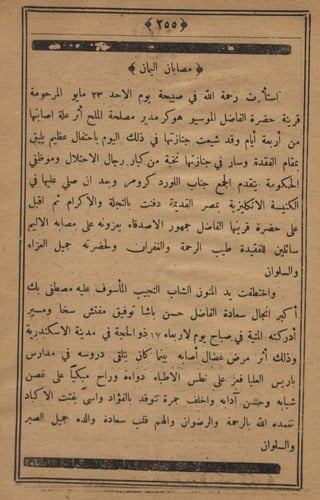 ﴿ ٢٥٥ ﴾
﴿ مصابان اليمان ﴾
استأثرت رحمة الله في صبيحة يوم الاحد ٢٣ مايو المرحومة
قرينة حضرة الفاضل الموسيو هوكر مدير مصلحة الملح اثر علة اصابتها
من أربعة أيام وقد شيعت جنازتها في ذلك اليوم باحتفال عظيم يليق
بمقام الفقيدة وسار في جنازتها نخبة من كبار رجال الاحتلال وموظفي
الحكومة يتقدم الجمع جناب اللورد كرومر وبعد ان صلي عليها في
الكنيسة الانكليزية بمصر القديمة دفنت بالتجلة والاكرام ثم اقبل
على حضرة قرينها الفاضل جمهور الاصدقاء يعزونه على مصابه الاليم
سائلين للفقيدة طيب الرحمة والغفران ولحضرته جميل العزاء
والسلوان
واختطفت يد المنون الشاب النجيب المأسوف عليه مصطفى بك
أكبر انجال سعادة الفاضل حسن باشا توفيق مفتش سخا ومسير
أدركته المنية في صباح يوم لاربعاء ١٧ ذو الحجة في مدينة الاسكندرية
وذلك أثر مرض عضال أصابه بينما كان يتلقى دروسه في مدارس
باريس العليا فعز على نطس الاطباء دواءه وراح مبكيًا على غصن
شبابه وحسن آدابه واخلف جمرة تتوقد بالفؤاد واسى يفتت الاكباد
تغمده الله بالرحمة والرضوان والهم قلب سعادة والده جميل الصبر
والسلوان